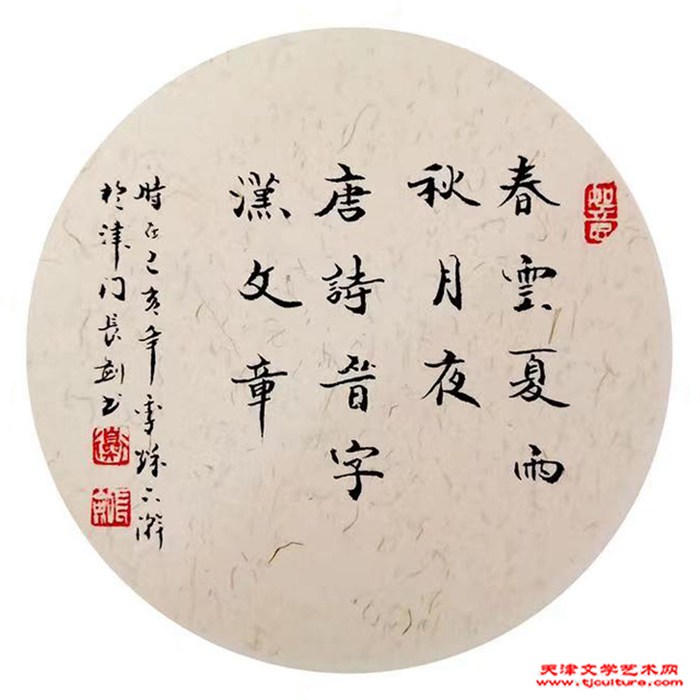 春雲夏雨
秋月夜
唐詩晉字
漢文章
時在己亥年季秋下澣
於津门長剑书
天津文学艺术网
www.tjculture.com